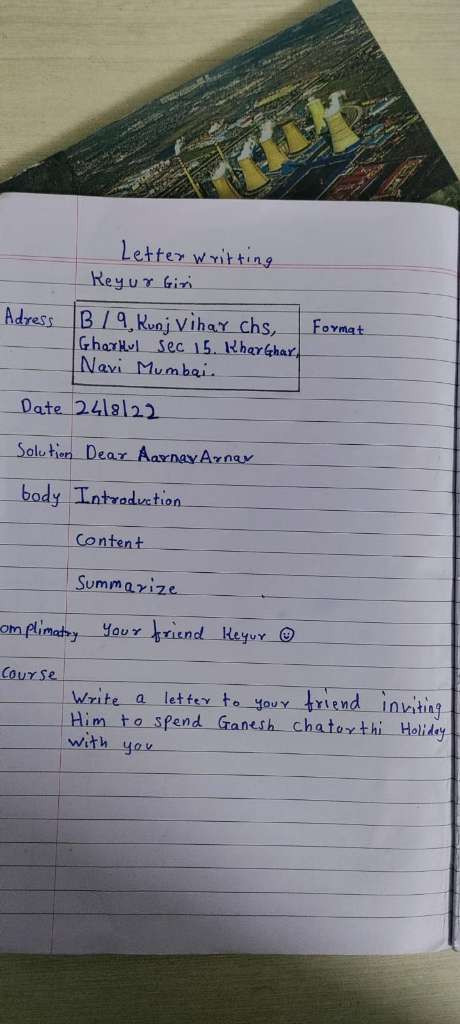 Letter writting
Keyur Giri
Adress B/9, Kunj Vihar chs, Format
Gharkul sec 15. KharGhar,
Navi Mumbai.
Date 24/8/22
Solution Dear Aarnav Arnav
body Introduction
Content
Summarize
omplimatry your friend Keyur ☺
Course
Write a letter to your friend inviting
Him to spend Ganesh chaturthi Holiday
with you